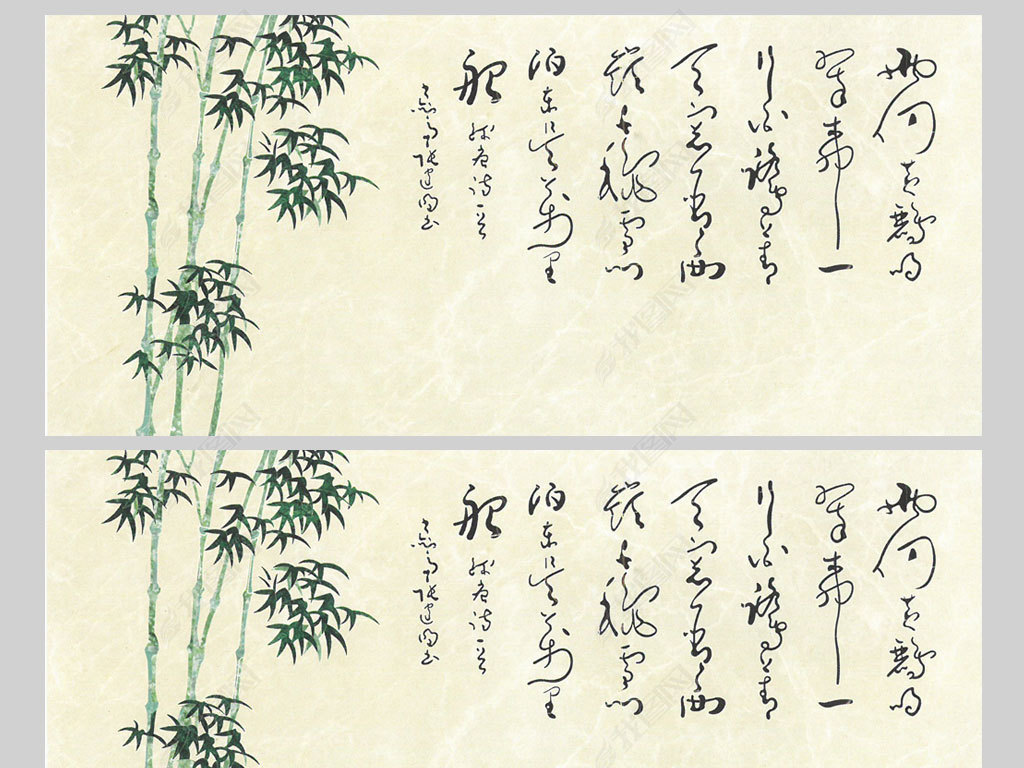 两个黄鹂鸣
翠柳一
行白鹭上青
天窗含西
岭千秋雪门
泊东吴万里
船 诗一首
两个黄鹂鸣
翠柳一
行白鹭上青
天窗含西
岭千秋雪门
泊东吴万里
船 诗一首